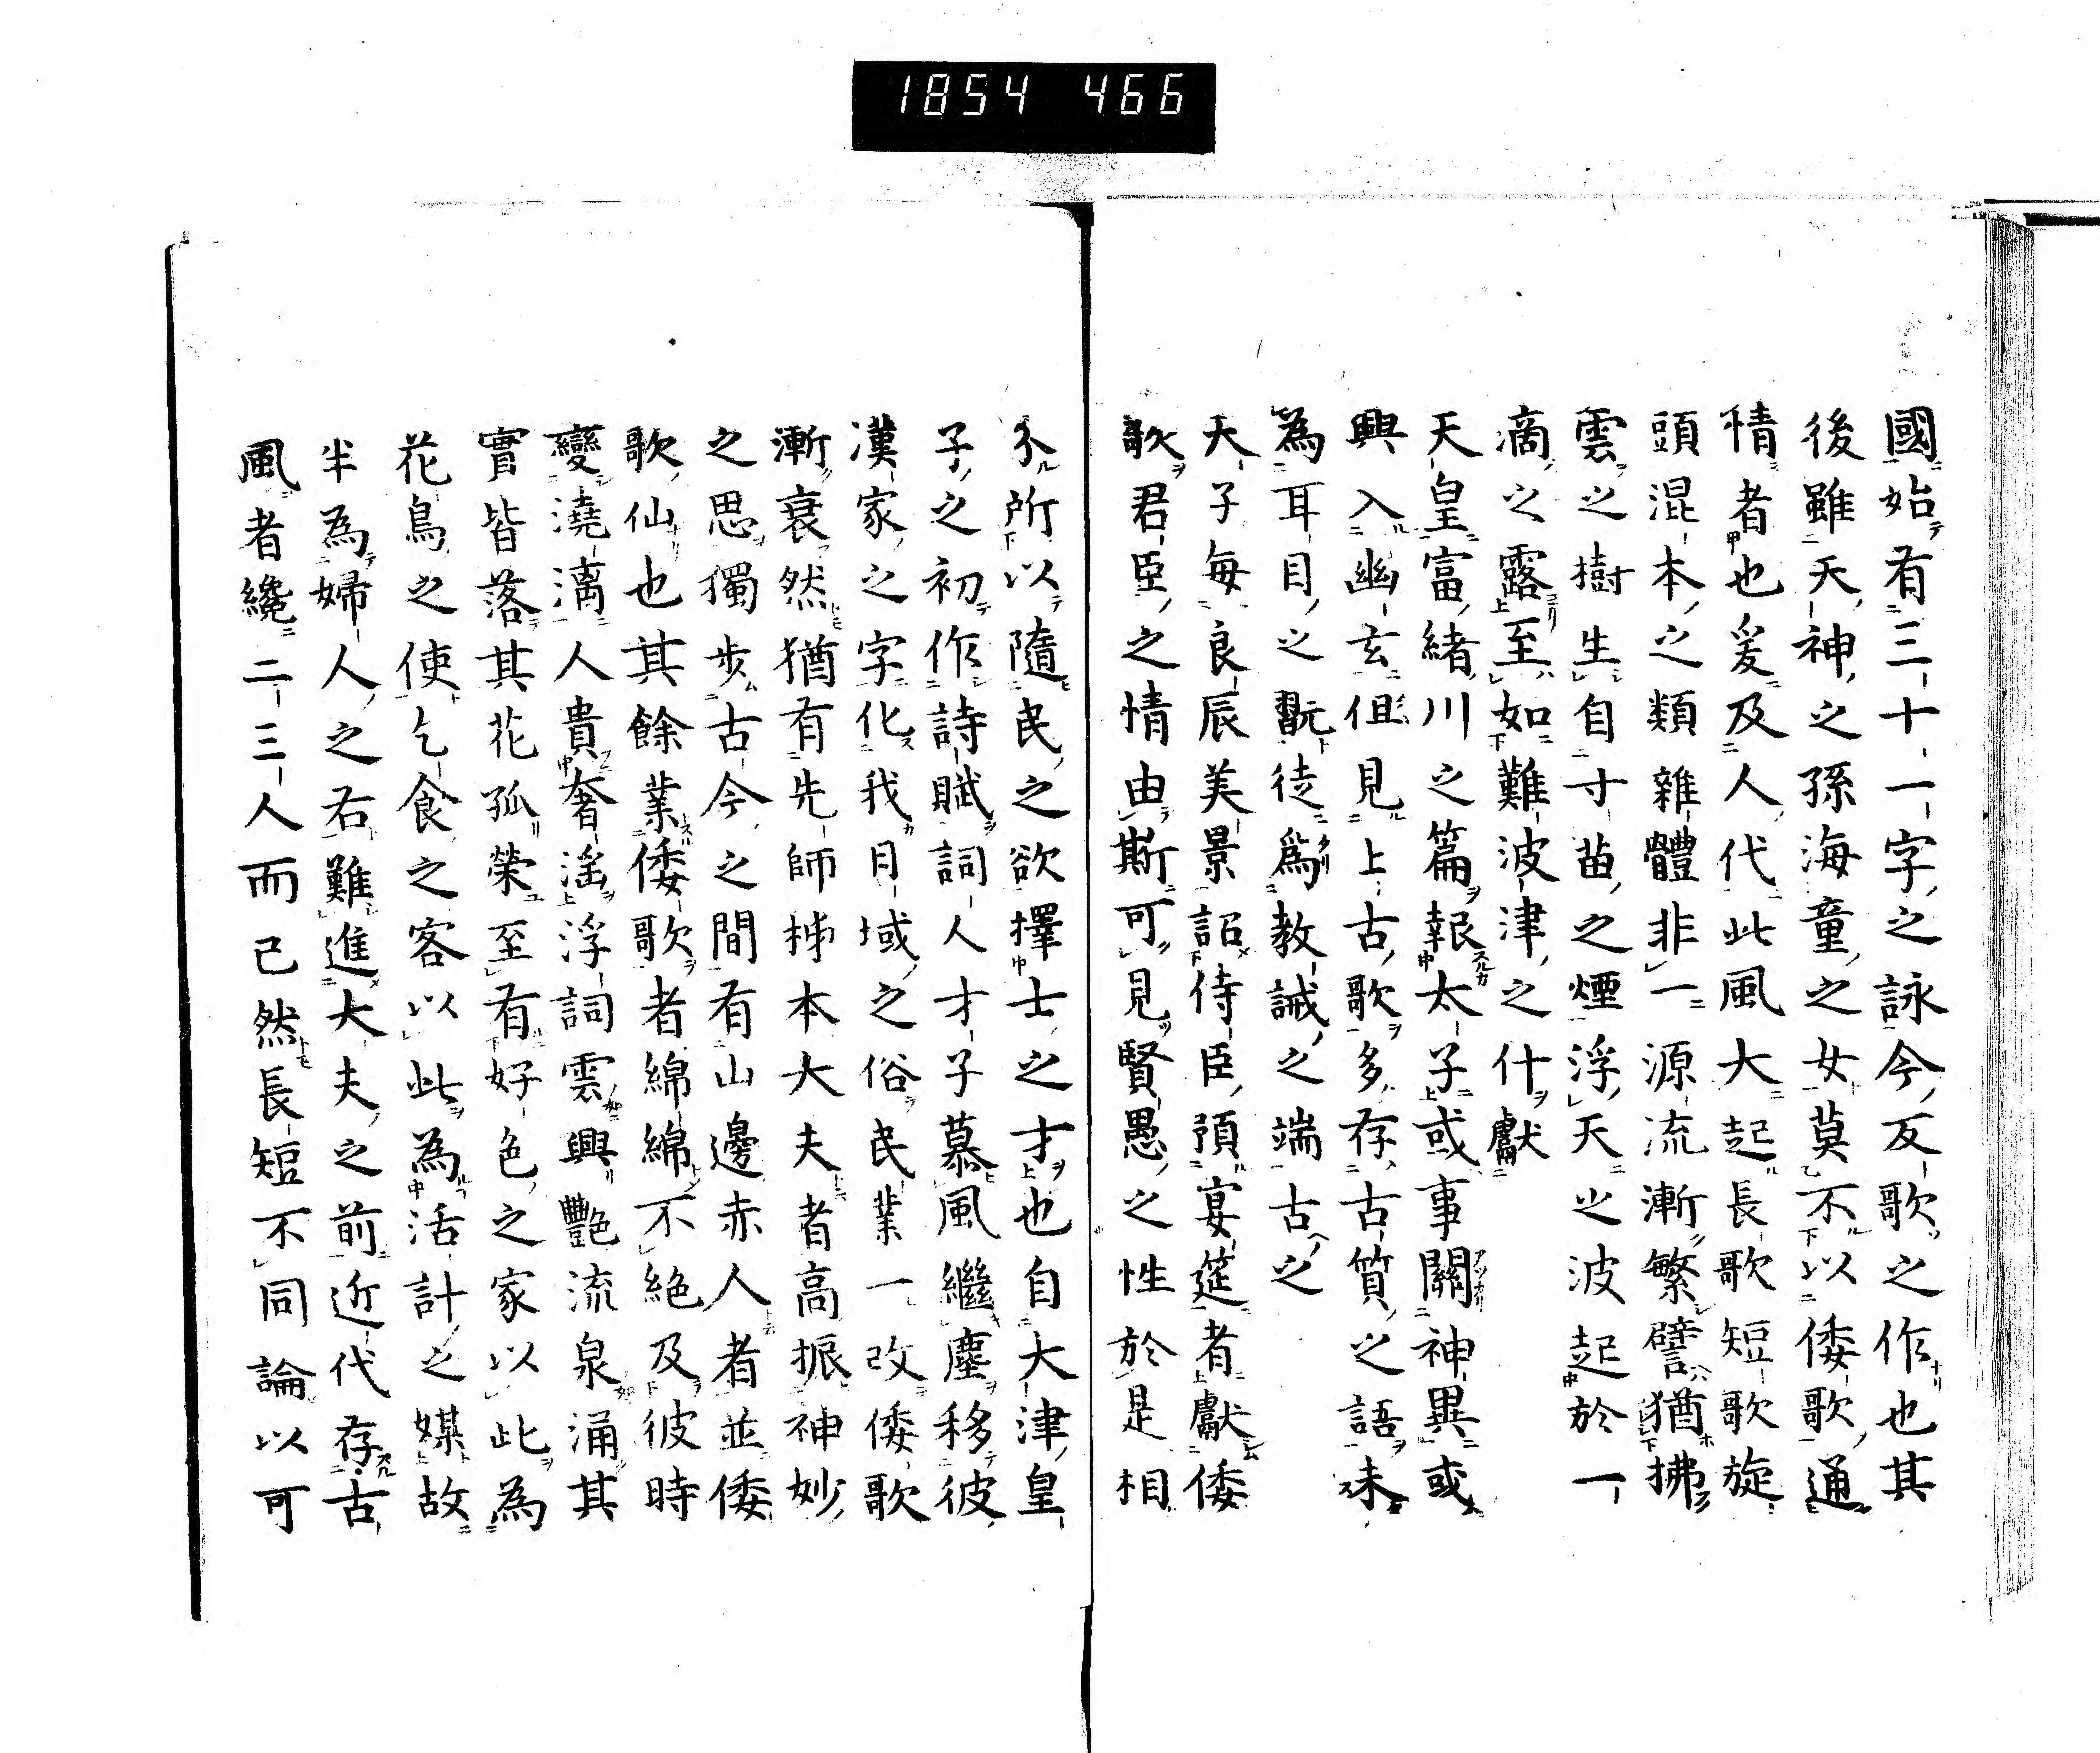 1854 466
國始有三十一字之詠今反歌之作也其
後雖天神之孫海童之女莫不以倭歌通
情者也爰及人代此風大起長歌短歌旋
頭混本之類雜體非一源流漸繁譬猶拂
雲之樹生自寸苗之煙浮天之波起於一
滴之露至如難波津之什獻
天皇富緒川之篇報太子或事關神異或
興入幽玄但見上古歌多存古質之語未
為耳目之翫徒為教誡之端古之
天子每良辰美景詔侍臣預宴筵者獻倭
歌君臣之情由斯可見賢愚之性於是相
分所以隨民之欲擇士之才也自大津皇
子之初作詩賦詞人才子慕風繼塵移彼
漢家之字化我日域之俗民業一改倭歌
漸衰然猶有先師柹本大夫者高振神妙
之思獨步古今之間有山邊赤人者並倭
歌仙也其餘業倭歌者綿綿不絕及彼時
變澆漓人貴奢滛浮詞雲興艷流泉涌其
實皆落其花孤榮至有好色之家以此為
花鳥之使乞食之客以此為活計之媒故
半為婦人之右難進大夫之前近代存古
風者纔二三人而已然長短不同論以可